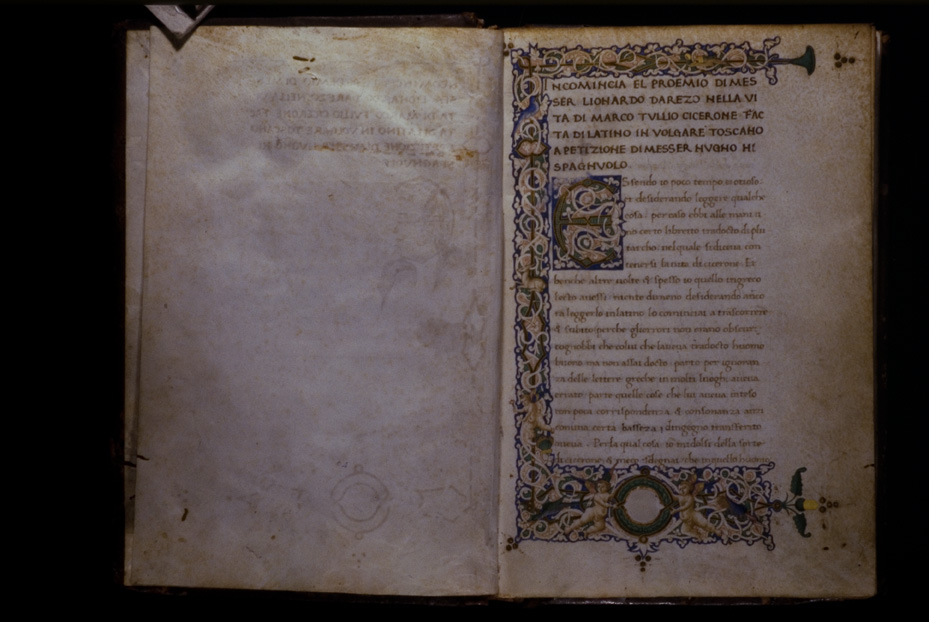 INCOMINCIA EL PROEMIO DI MES
SER LIONARDO DAREZO NELLA VI
TA DI MARCO TULLIO CICERONE FAC
TA DI LATINO IN VOLGARE TOSCANO
A PETIZIONE DI MESSER HUGNO HI
SPAGNUOLO
Essendo io poco tempo
et desiderando leggere qualche
cosa per caso ebbi alle mani
certo libretto tradocto di plu
tarcho nel quale si diceva con
tenersi la vita di cicerone Et
benche altre volte & spesso io quello in greco
lecto avessi niente di meno desiderando anco
ra leggerlo in latino lo cominciai a trascorrere
& subito perche gli errori non erano obscuri
cognobbi che colui che laveva tradocto huomo
buono ma non assai docto parte per ignoran
za delle lettere greche in molti luoghi aveva
errato parte quelle cose che lui aveva inteso
con poca corrispondenza & consonanza anzi
con una certa bassezza dingegno transferito
aveva Per la qual cosa io mi dolsi della sorte
di cicerone & meco che in quello huomo